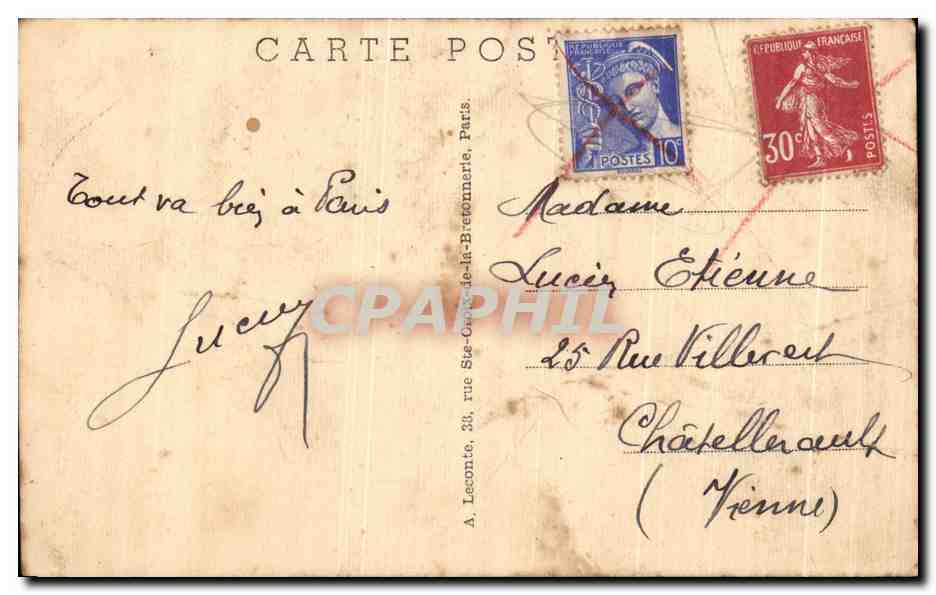 CARTE POST
RÉPUBLIQUE
FRANÇAISE
POSTES
10c
RÉPUBLIQUE FRANÇAISE
30c
POSTES
Tout va bien à Paris
Lucien
A. Leconte, 38, rue Ste-Croix-de-la-Bretonnerie, Paris.
Madame
Lucien Etienne
25 Rue Villevert
Châtellerault
(Vienne)
CPAPHIL